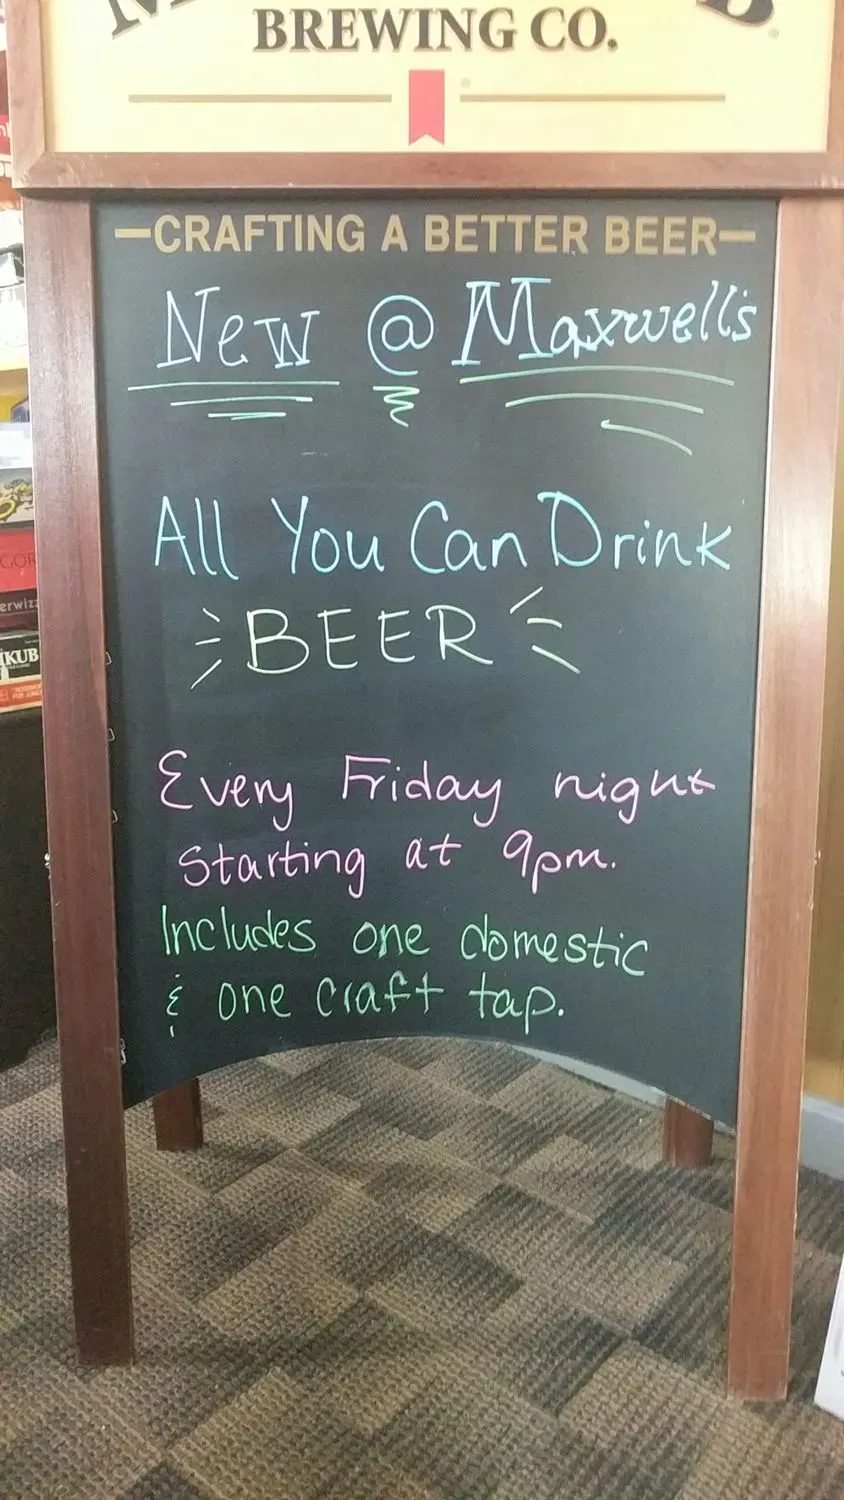 BREWING CO.
—CRAFTING A BETTER BEER—
New @ Maxwell's
All You Can Drink
BEER
Every Friday night
starting at 9pm.
Includes one domestic
& one craft tap.
GOR
erwiz
IKUB